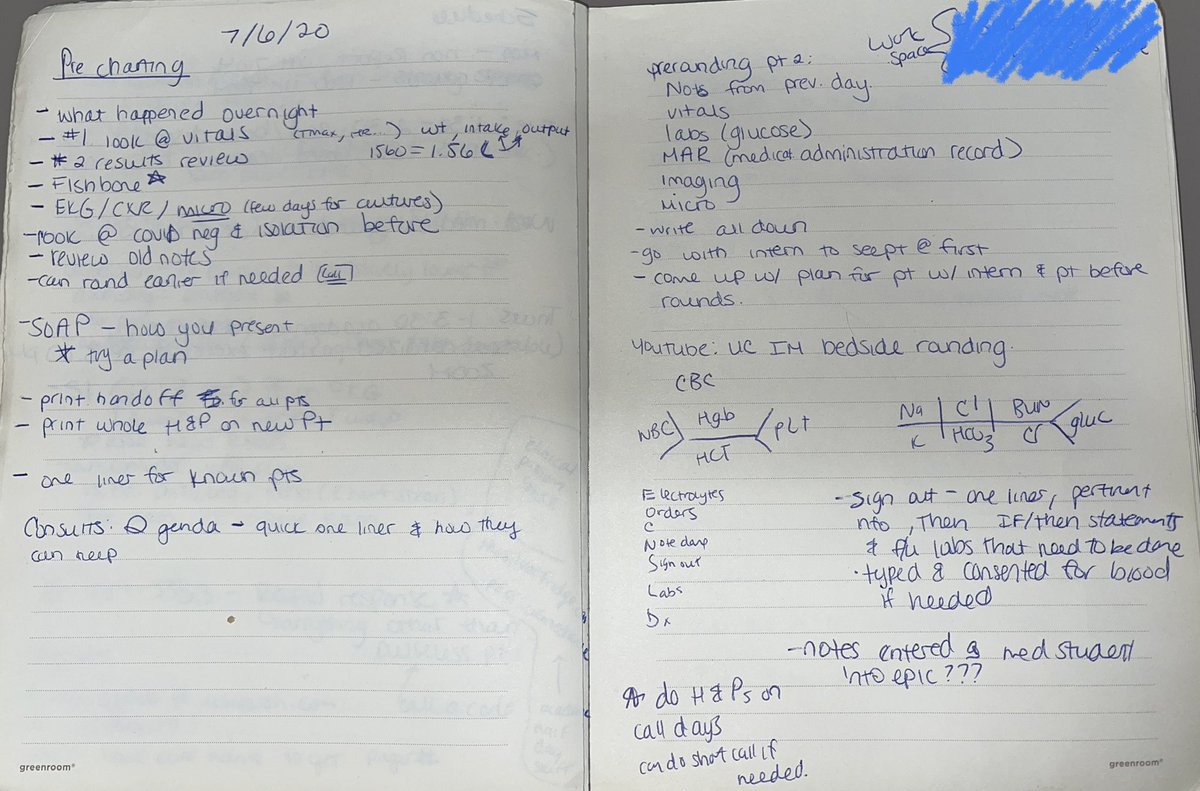 7/6/20
Pre charting
- what happened overnight
- #1 look @ vitals (Tmax, ...) wt, intake, output
1560 = 1.56 L
- #2 results review
- Fishbone ☆
- EKG/CXR/micro (few days for cultures)
- look @ covid neg & isolation before
- review old notes
- can rand earlier if needed
- SOAP - how you present
* try a plan
- print handoff for all pts
- print whole H&P on new Pt
- one liner for known pts
Consults: genda - quick one liner & how they
can help
greenroom®
work
space
preranding pt 2:
Nots from prev. day.
vitals
labs (glucose)
MAR (medicat. administration record)
Imaging
Micro
- write all down
- go with intern to see pt @ first
- come up w/ plan for pt w/ intern & pt before
rounds.
Youtube: UC IM bedside randing.
CBC
WBC Hgb HCT PLT
Na Cl BUN
K HCO3 Cr gluc
Electrolytes
Orders
C
Note done
Sign out
Labs
Dx
- sign out - one liners, pertinent
info, Then IF/then statements
& f/u labs that need to be done
· typed & consented for blood
if needed
- notes entered as med student
into epic???
☆ do H&Ps on
call days
can do short call if
needed.
greenroom®